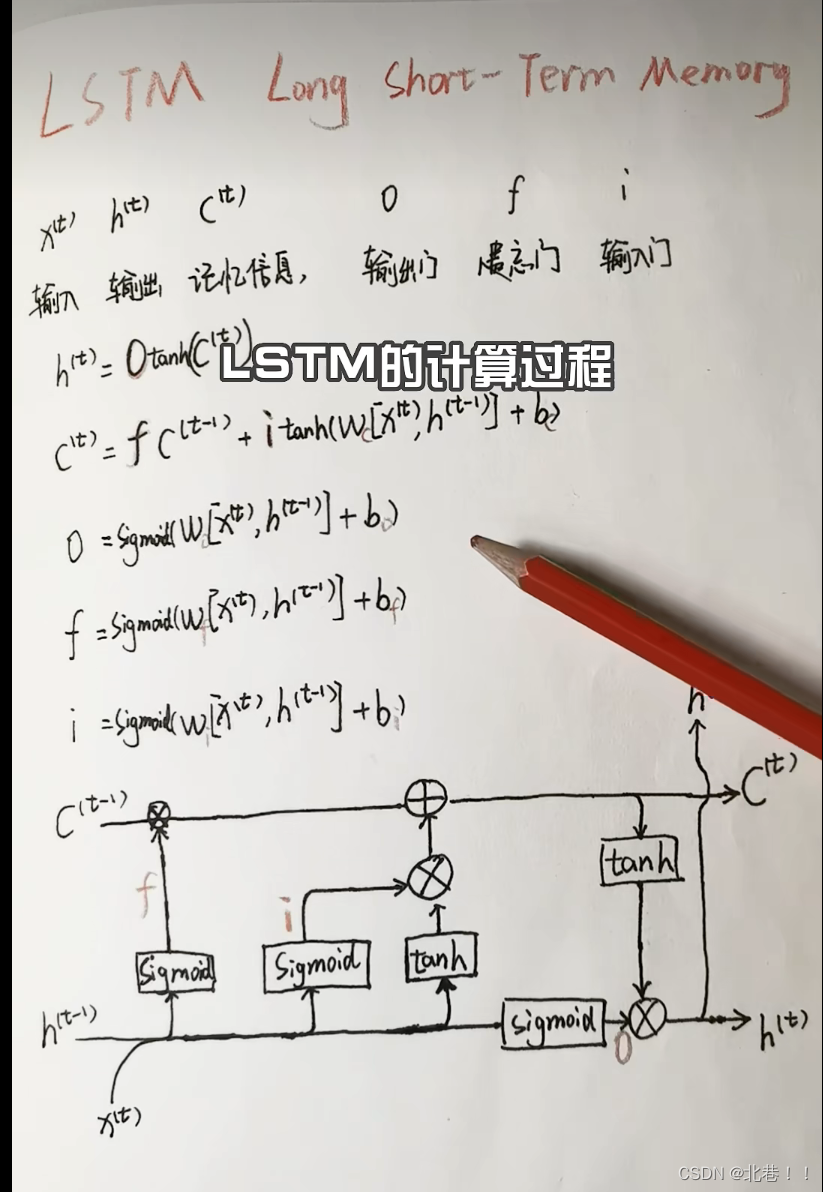 LSTM Long Short-Term Memory
x(t) h(t) C(t) O f i
输入 输出 记忆信息, 输出门 遗忘门 输入门
h(t) = O tanh(C(t))
LSTM的计算过程
C(t) = f C(t-1) + i tanh(Wc[x(t), h(t-1)] + bc)
O = sigmoid(Wo[x(t), h(t-1)] + bo)
f = sigmoid(Wf[x(t), h(t-1)] + bf)
i = sigmoid(Wi[x(t), h(t-1)] + bi)
h
C(t-1)
C(t)
tanh
f
i
sigmoid
sigmoid
tanh
h(t-1)
sigmoid
O
h(t)
x(t)
CSDN @北巷！！